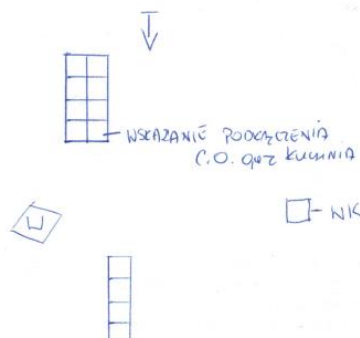 WSKAZANIE PODŁĄCZENIA
C.O. oraz KUCHNIA
W
WK